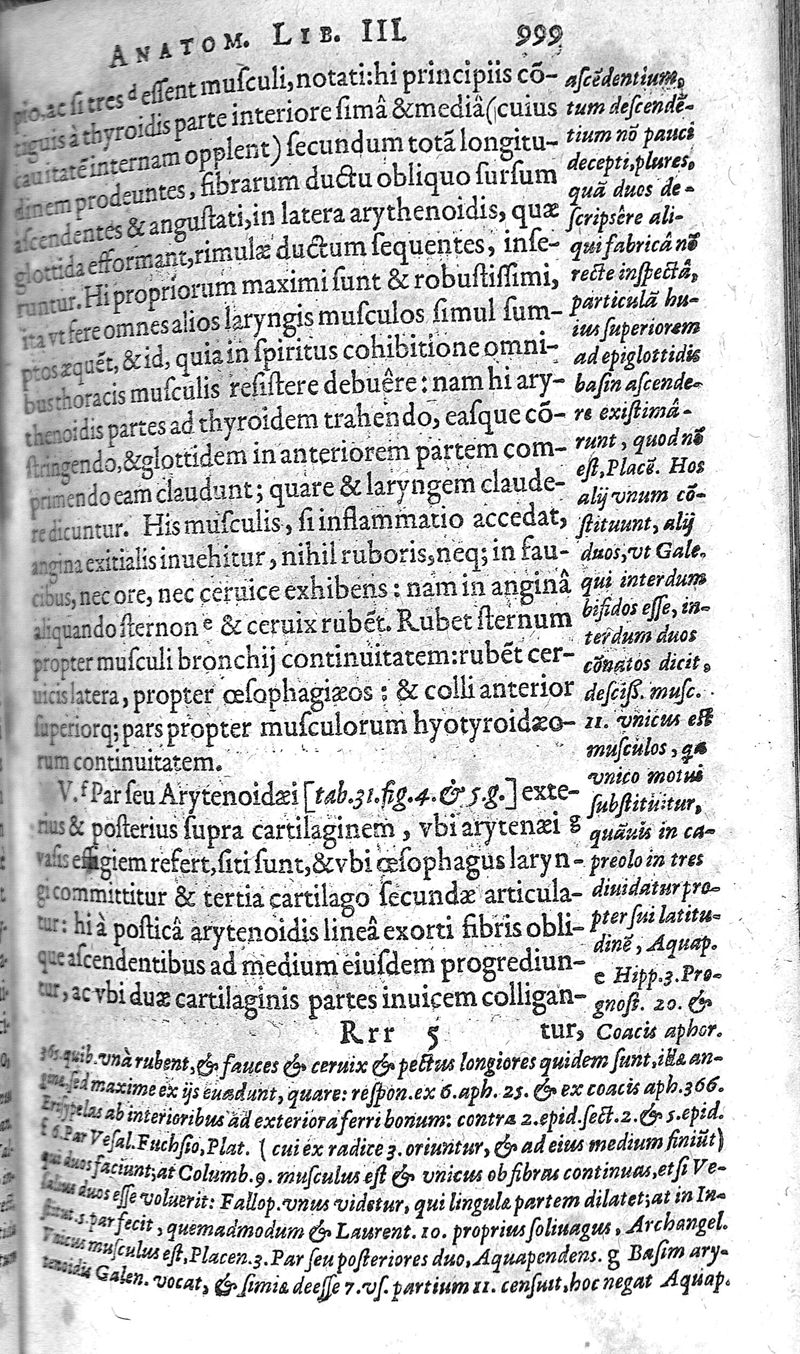 ANATOM. LIB. III. 999
pio, ac si tres d essent musculi, notati: hi principiis cō-
tiguis à thyroidis parte interiore simâ & mediâ (cuius
cauitatē internam opplent) secundum totā longitu-
dinem prodeuntes, fibrarum ductu obliquo sursum
ascendentes & angustati, in latera arythenoidis, quæ
glottida efformant, rimulæ ductum sequentes, inse-
runtur. Hi propriorum maximi sunt & robustissimi,
ita vt fere omnes alios laryngis musculos simul sum-
ptos æquēt, & id, quia in spiritus cohibitione omni-
bus thoracis musculis resistere debuêre: nam hi ary-
thenoidis partes ad thyroidem trahendo, easque cō-
stringendo, & glottidem in anteriorem partem com-
primendo eam claudunt; quare & laryngem claude-
re dicuntur. His musculis, si inflammatio accedat,
angina exitialis inuehitur, nihil ruboris, neq; in fau-
cibus, nec ore, nec ceruice exhibens: nam in anginâ
aliquando sternon e & ceruix rubēt. Rubet sternum
propter musculi bronchij continuitatem: rubēt cer-
uicis latera, propter œsophagiæos: & colli anterior
superiorq; pars propter musculorum hyotyroidæo-
rum continuitatem.
V. f Par seu Arytenoidæi [tab. 31. fig. 4. & 5. g.] exte-
rius & posterius supra cartilaginem, vbi arytenæi g
vasis effigiem refert, siti sunt, & vbi œsophagus laryn-
gi committitur & tertia cartilago secundæ articula-
tur: hi à posticâ arytenoidis lineâ exorti fibris obli-
que ascendentibus ad medium eiusdem progrediun-
tur, ac vbi duæ cartilaginis partes inuicem colligan-
Rrr 5 tur,
ascēdentium,
tum descendē-
tium nō pauci
decepti, plures,
quā duos de-
scripsêre ali-
qui fabricâ nō
recte inspectâ,
particulā hu-
ius superiorem
ad epiglottidis
basin ascende-
re existimâ-
runt, quod nō
est, Placē. Hos
alij vnum cō-
stituunt, alij
duos, vt Gale.
qui interdum
bifidos esse, in-
terdum duos
cōnatos dicit,
desciss. musc.
11. vnicus est
musculos, qa
vnico motui
substituitur,
quāuis in ca-
preolo in tres
diuidatur pro-
pter sui latitu-
dinē, Aquap.
e Hipp. 3. Pro-
gnost. 20. &
Coacis aphor.
365. quib. vnà rubent, & fauces & ceruix & pectus longiores quidem sunt, illæ an-
ginæ, sed maxime ex ijs euadunt, quare: respon. ex 6. aph. 25. & ex coacis aph. 366.
Erysypelas ab interioribus ad exteriora ferri bonum: contra 2. epid. sect. 2. & 5. epid.
f 6. Par Vesal. Fuchsio, Plat. (cui ex radice 3. oriuntur, & ad eius medium finiūt)
qui duos faciunt; at Columb. 9. musculus est & vnicus ob fibras continuas, etsi Ve-
salius duos esse voluerit: Fallop. vnus videtur, qui lingulæ partem dilatet; at in In-
stitut. 5. par fecit, quemadmodum & Laurent. 10. proprius soliuagus, Archangel.
Vnicus musculus est, Placen. 3. Par seu posteriores duo, Aquapendens. g Basim ary-
tenoidis Galen. vocat, & simia deesse 7. vs. partium 11. censuit, hoc negat Aquap.